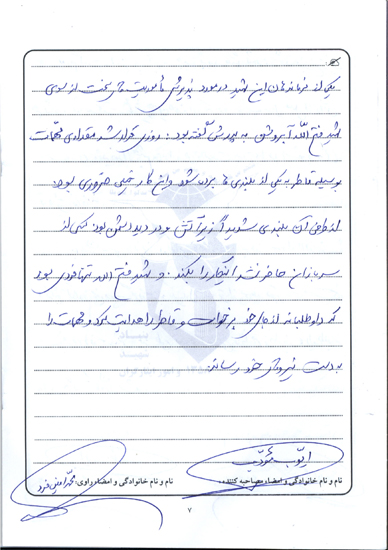 یکی از فرماندهان این شهید در مورد پذیرش مأموریت های سخت از سوی
شهید فتح الله آبروش به پدرش گفته بود: روزی قرار شد مقداری مهمات
بوسیله قاطر به یکی از بلندی ها برده شود و این کار خیلی ضروری بود.
از طرفی آن بلندی شدیداً زیر آتش و در دید دشمن بود. کسی از
سربازان حاضر نشد اینکار را بکند. و شهید فتح الله تنها فردی بود
که داوطلبانه از جای خود برخواست و قاطر را هدایت کرد و مهمات را
بدست نیروهای خود رساند.
ایوب مؤدب
نام و نام خانوادگی و امضاء مصاحبه کننده:
نام و نام خانوادگی و امضاء راوی: محمد امینی فرد
۷